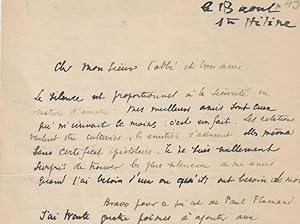 le 13 aout 43
Ste Hélène
Cher Monsieur l'abbé et bon ami.
Le silence est proportionnel à la sécurité en
matière d'amitié. Mes meilleurs amis sont ceux
qui m'écrivent le moins: c'est un fait. Les relations
veulent être cultivées, les amitiés s'assurent elles mêmes
sans certificat épistolaire. Je ne suis nullement
surpris de trouver les plus silencieux de mes amis
quand j'ai besoin d'eux ou qu'ils ont besoin de moi
Bravo pour ce qui est de Paul Flamand
J'ai trente quatre poèmes à ajouter aux